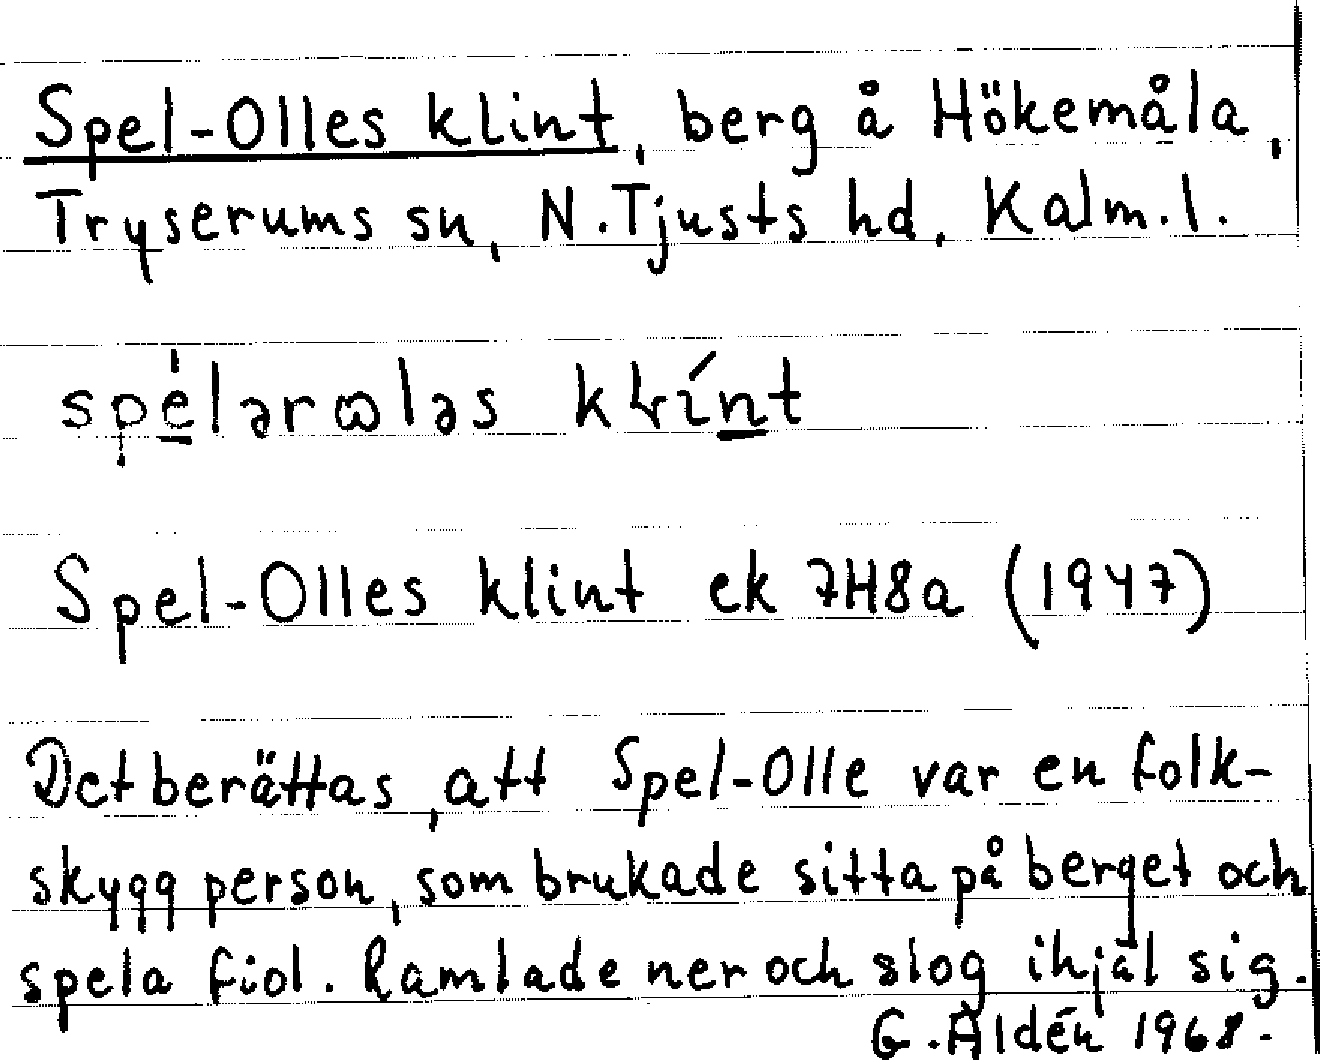 Spel-Olles klint, berg å Hökemåla,
Tryserums sn, N.Tjusts hd, Kalm.l.
spélərωləs klint
Spel-Olles klint ek 7H8a (1947)
Det berättas, att Spel-Olle var en folk-
skygg person, som brukade sitta på berget och
spela fiol. Ramlade ner och slog ihjäl sig.
G. Aldén 1968.